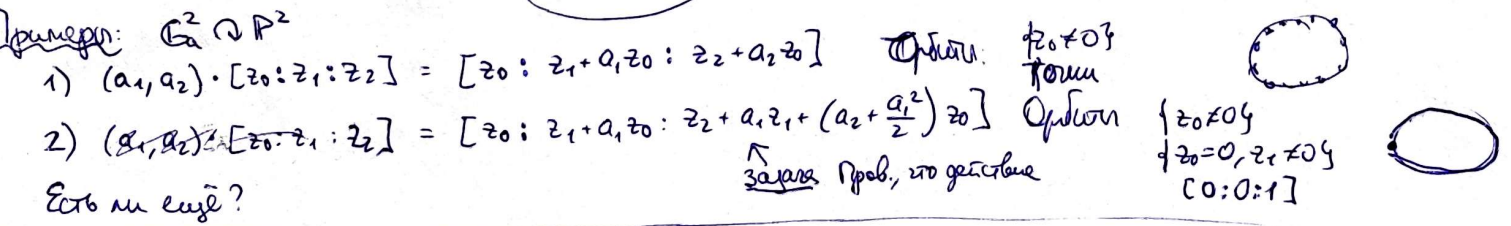 Примеры: 𝔾ₐ² ↷ ℙ²
1) (a₁, a₂) · [z₀ : z₁ : z₂] = [z₀ : z₁ + a₁z₀ : z₂ + a₂z₀] Орбиты: {z₀ ≠ 0}
точки
2) (a₁, a₂) · [z₀ : z₁ : z₂] = [z₀ : z₁ + a₁z₀ : z₂ + a₁z₁ + (a₂ + a₁²/2) z₀] Орбиты {z₀ ≠ 0}
{z₀ = 0, z₁ ≠ 0}
[0:0:1]
↖ Задача Пров., что действие
Есть ли ещё?